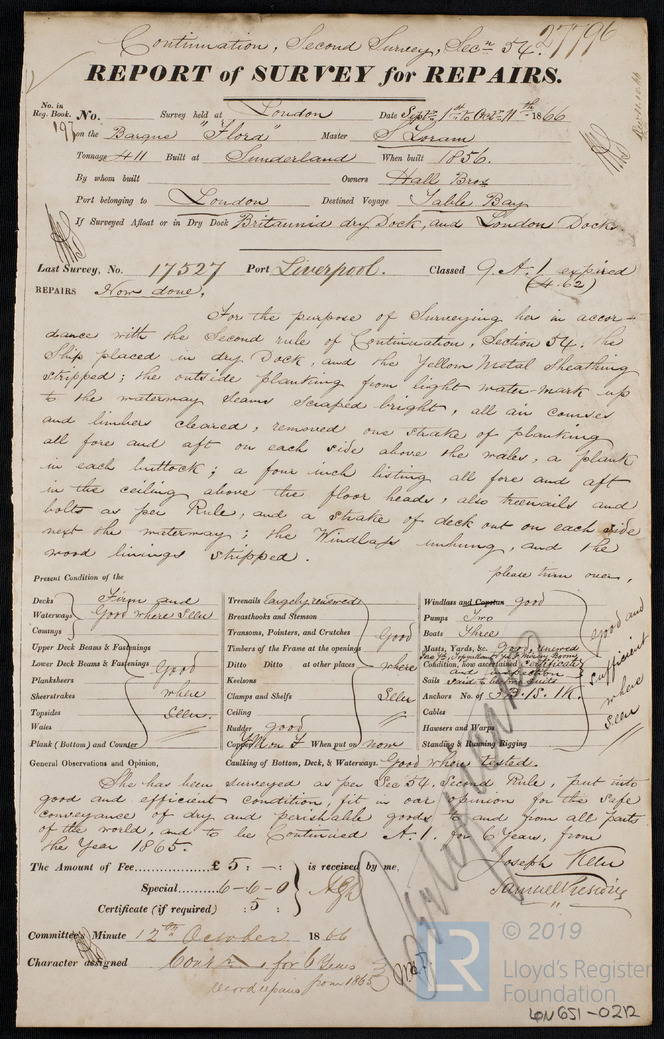 Continuation, Second Survey, Secn 54. 27796
REPORT of SURVEY for REPAIRS.
No. in Reg. Book. No. Survey held at London Date Septr 1st to Octr 11th 1866
197 on the Barque "Flora" Master S Loram
Tonnage 411 Built at Sunderland When built 1856.
By whom built Owners Hall Bros
Port belonging to London Destined Voyage Table Bay
If Surveyed Afloat or in Dry Dock Britannia dry Dock, and London Docks.
Last Survey, No. 17527 Port Liverpool. Classed 9 A.1. expired
(4.62)
REPAIRS Now done,
For the purpose of Surveying her in accor-
dance with the Second rule of Continuation, Section 54. the
Ship placed in dry Dock, and the Yellow Metal Sheathing
stripped; the outside planking from light water-mark up
to the waterway seams scraped bright, all air courses
and limbers cleared, removed one strake of planking
all fore and aft on each side above the wales, a plank
in each buttock; a four inch listing all fore and aft
in the ceiling above the floor heads, also treenails and
bolts as per Rule, and a strake of deck out on each side
next the waterway; the Windlass unhung, and the
wood linings stripped.
please turn over,
Present Condition of the
Decks Firm and
Waterways Good where Seen
Comings
Upper Deck Beams & Fastenings
Lower Deck Beams & Fastenings Good
Planksheers
Sheerstrakes where
Topsides Seen.
Wales
Plank (Bottom) and Counter
Treenails largely renewed
Breasthooks and Stemson
Transoms, Pointers, and Crutches Good
Timbers of the Frame at the openings
Ditto Ditto at other places where
Keelsons
Clamps and Shelfs Seen
Ceiling
Rudder good
Copper YM on F When put on now
Windlass and Capstan good
Pumps Two
Boats Three
Masts, Yards, &c. Good, renewed
Condition, how ascertained certificate
and inspection
Sails said to be two suits
Anchors No. of 3B. 1S. 1K.
Cables
Hawsers and Warps
Standing & Running Rigging
Good and
sufficient
where
Seen
General Observations and Opinion, Caulking of Bottom, Deck, & Waterways. Good where tested.
She has been surveyed as per Sec 54. Second Rule, put into
good and efficient condition, fit in our opinion for the safe
conveyance of dry and perishable goods to and from all parts
of the world, and to be Continued A.1. for 6 Years, from
the Year 1865.
The Amount of Fee £ 5 : - : is received by me,
Special 6-6-0
Certificate (if required) : 5 :
Joseph
Samuel
Committee's Minute 12th October 1866
Character assigned Contd A 1 for 6 Years
record repairs from 1865
LR © 2019
Lloyd's Register
Foundation
LON651-0212